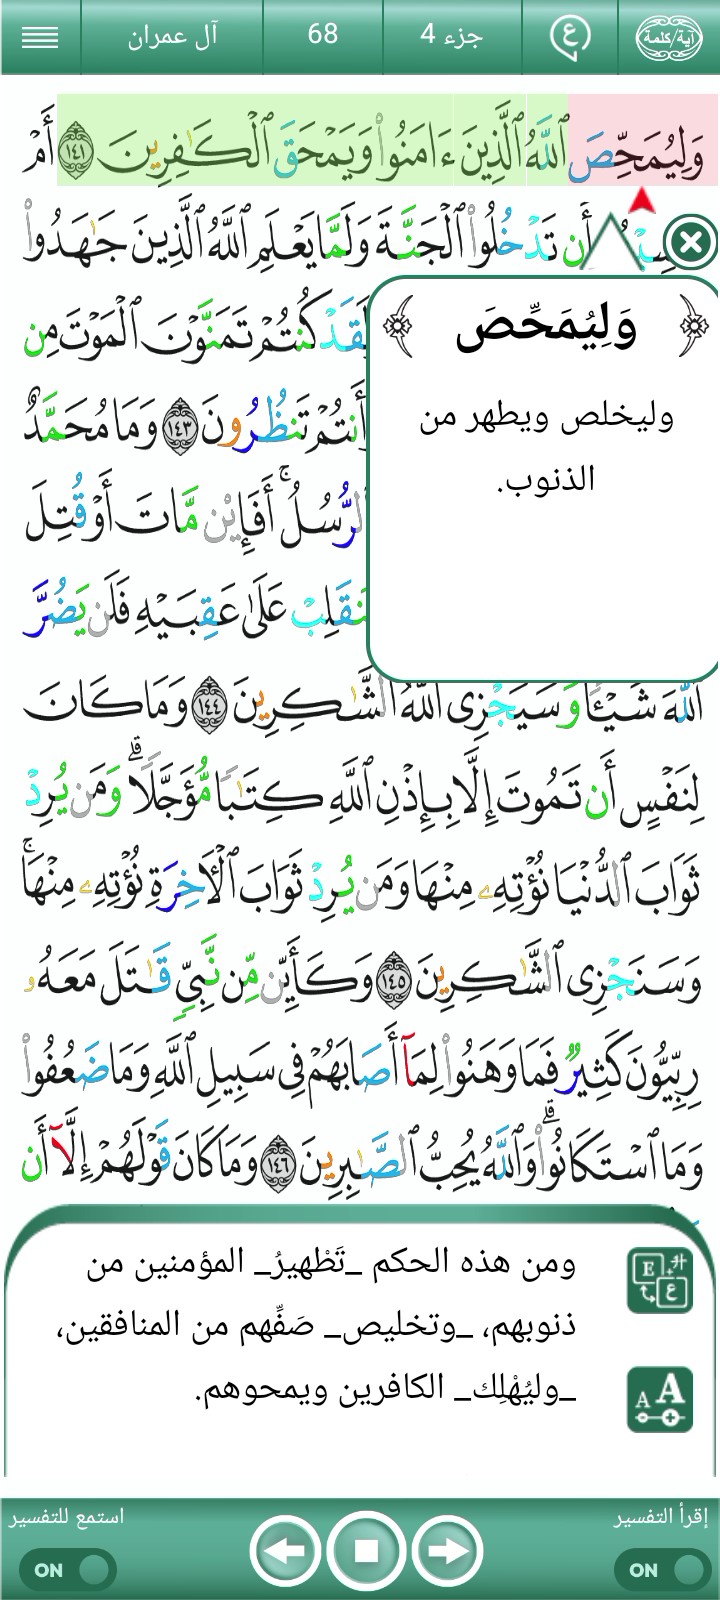 آية/كلمة
ع
جزء 4
68
آل عمران
وَلِيُمَحِّصَ ٱللَّهُ ٱلَّذِينَ ءَامَنُوا۟ وَيَمْحَقَ ٱلْكَـٰفِرِينَ ١٤١ أَمْ
أَن تَدْخُلُوا۟ ٱلْجَنَّةَ وَلَمَّا يَعْلَمِ ٱللَّهُ ٱلَّذِينَ جَـٰهَدُوا۟
كُنتُمْ تَمَنَّوْنَ ٱلْمَوْتَ مِن
أَنتُمْ تَنظُرُونَ ١٤٣ وَمَا مُحَمَّدٌ
ٱلرُّسُلُ ۚ أَفَإِي۟ن مَّاتَ أَوْ قُتِلَ
عَلَىٰ عَقِبَيْهِ فَلَن يَضُرَّ
وَلِيُمَحِّصَ
وليخلص ويطهر من
الذنوب.
ٱللَّهَ شَيْـًٔا وَسَيَجْزِى ٱللَّهُ ٱلشَّـٰكِرِينَ ١٤٤ وَمَا كَانَ
لِنَفْسٍ أَن تَمُوتَ إِلَّا بِإِذْنِ ٱللَّهِ كِتَـٰبًا مُّؤَجَّلًا ۗ وَمَن يُرِدْ
ثَوَابَ ٱلدُّنْيَا نُؤْتِهِۦ مِنْهَا وَمَن يُرِدْ ثَوَابَ ٱلْـَٔاخِرَةِ نُؤْتِهِۦ مِنْهَا ۚ
وَسَنَجْزِى ٱلشَّـٰكِرِينَ ١٤٥ وَكَأَيِّن مِّن نَّبِىٍّ قَـٰتَلَ مَعَهُۥ
رِبِّيُّونَ كَثِيرٌ فَمَا وَهَنُوا۟ لِمَآ أَصَابَهُمْ فِى سَبِيلِ ٱللَّهِ وَمَا ضَعُفُوا۟
وَمَا ٱسْتَكَانُوا۟ ۗ وَٱللَّهُ يُحِبُّ ٱلصَّـٰبِرِينَ ١٤٦ وَمَا كَانَ قَوْلَهُمْ إِلَّآ أَن
ومن هذه الحكم _تَطْهيرُ_ المؤمنين من
ذنوبهم، _وتخليص_ صَفِّهم من المنافقين،
_وليُهْلِك_ الكافرين ويمحوهم.
إقرأ التفسير
استمع للتفسير
ON
ON